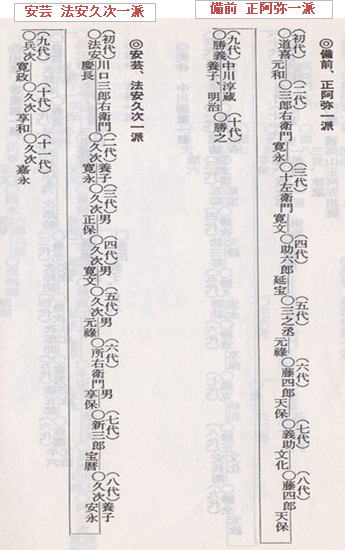 安芸 法安久次一派
備前 正阿弥一派
◎備前、正阿弥一派
(初代)○道喜 元和
(二代)○三郎右衛門 寛永
(三代)○十左衛門 寛文
(四代)○助六郎 延宝
(五代)○三之丞 元禄
(六代)○藤四郎 天保
(七代)○義助 文化
(八代)○藤四郎 天保
(九代)中川淳蔵 ○勝義 養子、明治
(十代)○勝之
◎安芸、法安久次一派
(初代)川口三郎右衛門 ○法安 慶長
(二代)養子 ○久次 寛永
(三代)男 ○久次 正保
(四代)男 ○久次 寛文
(五代)男 ○久次 元禄
(六代)男 ○所右衛門 享保
(七代)○新三郎 宝暦
(八代)養子 ○久次 安永
(九代)○兵次 寛政
(十代)○久次 享和
(十一代)○久次 嘉永